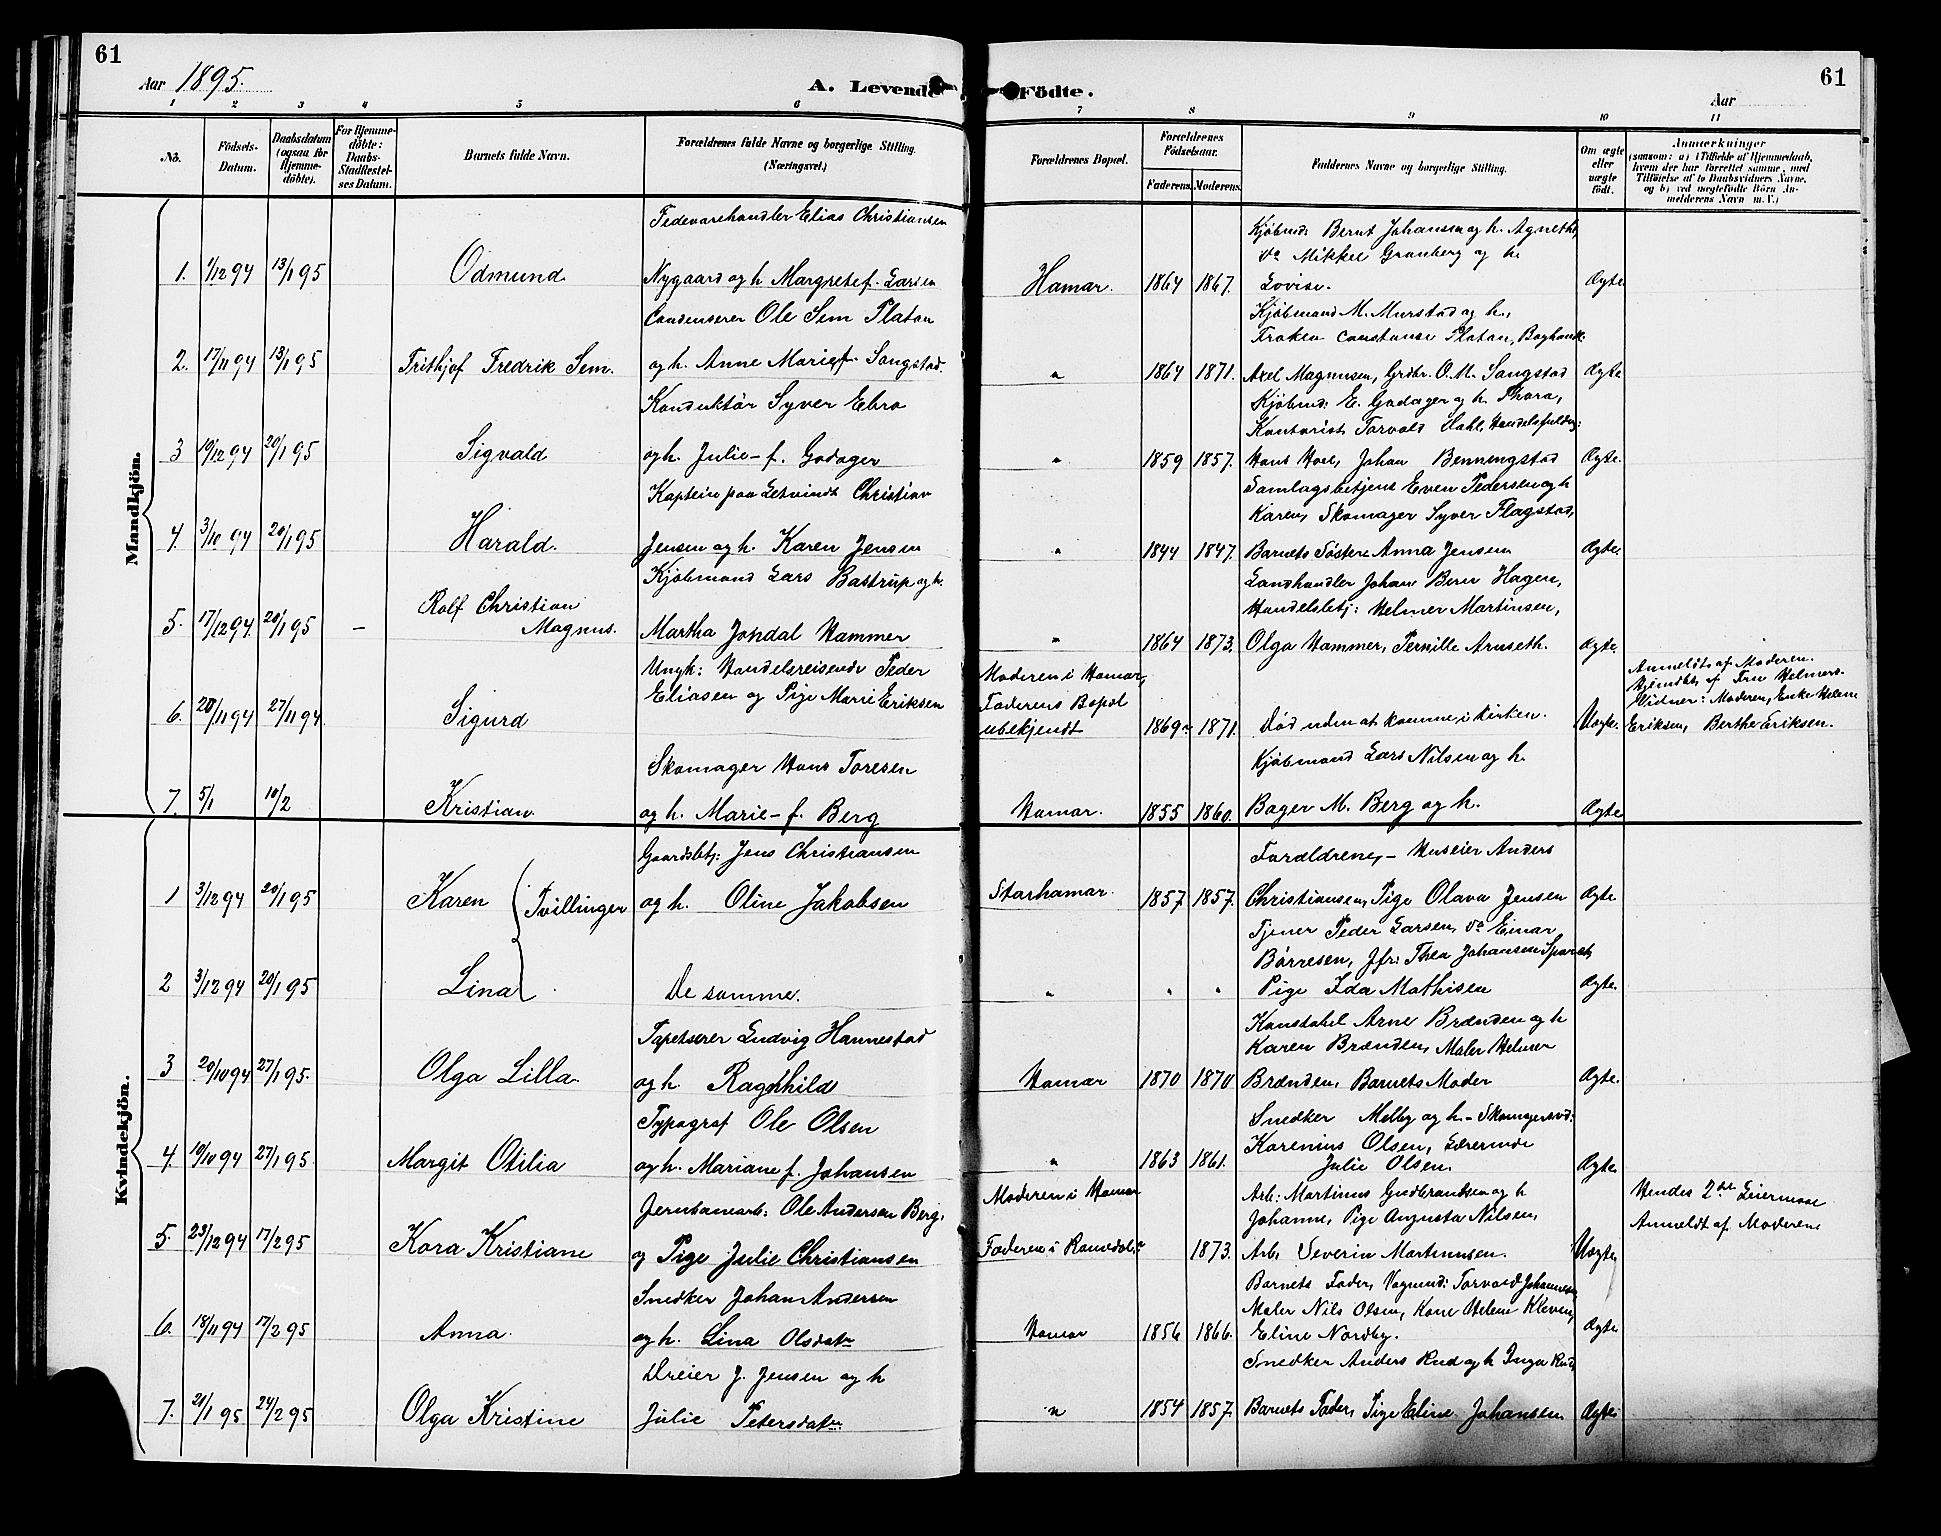 61
Aar 1895.
A. Levende
1 2 3 4 5 6
No.
Födsels-Datum.
Daabsdatum (ogsaa for Hjemme-döbte).
For Hjemme-döbte: Daabs-Stadfæstel-ses Datum.
Barnets fulde Navn.
Forældrenes fulde Navne og borgerlige Stilling. (Næringsvei.)
Mandkjön.
Fedevarehandler Elias Christiansen
1. 1/12 94 13/1 95 Odmund Nygaard og h. Margrete f. Larsen
Condenserer Ole Sem Platou
2. 17/11 94 13/1 95 Frithjof Fredrik Sem. og h. Anne Marie f. Sangstad.
Konduktör Syver Ebro
3 19/12 94 20/1 95 Sigvald og h. Julie f. Godager
Kaptein paa Letvindt Christian
4. 3/10 94 20/1 95 Harald. Jensen og h. Karen Jensen
Kjöbmand Lars Bastrup og h.
5. 17/12 94. 20/1 95 – Rolf Christian Magnus. Martha Jondal Hammer
Ungk: Handelsreisende Peder
6. 20/11 94 27/11 94 Sigurd Eliasen og Pige Marie Eriksen
Skomager Hans Toresen
7. 5/1 10/2 Kristian. og h. Marie – f. Berg
Kvindekjön.
Gaardsbtj: Jens Christiansen
1 3/12 94 20/1 95 Karen Tvillinger og h. Oline Jakobsen
2 3/12 94 20/1 95 Lina De samme.
Tapetserer Ludvig Hannestad
3 20/10 94 27/1 95. Olga Lilla. og h. Ragnhild
Typograf Ole Olsen
4. 19/10 94 27/1 95. Margit Otilia og h. Mariane f. Johansen
Jernbanearb: Ole Andersen Berg,
5. 23/12 94 17/2 95 Kora Kristiane og Pige Julie Christiansen
Snedker Johan Andersen
6. 18/11 94 17/2 95 Anna. og h. Lina Olsdatr
Dreier J. Jensen og h
7. 21/1 95 24/2 95 Olga Kristine Julie Petersdatr
Födte.
Aar
61
7 8 9 10 11
Forældrenes Bopæl.
Forældrenes Födselsaar.
Faderens. Moderens.
Faddernes Navne og borgerlige Stilling.
Om ægte eller uægte födt.
Anmærkninger
(saasom: a) i Tilfælde af Hjemmedaab,
hvem der har forrettet samme, med
Tilföielse af to Daabsvidners Navne,
og b) ved uægtefödte Börn An-
melderens Navn m. V.)
Kjöbmd: Bernt Johansen og h. Agnethe,
do Mikkel Granberg og h.
Hamar. 1864 1867. Lovise. Ægte
Kjöbmand M. Murstad og h.,
Fröken Constanse Platou, Boghandl:
" 1864 1871. Axel Magnusen, Grdbr. O. M. Sangstad Ægte
Kjöbmd: E. Godager og h. Thora,
Kontorist Torvald Dahl, Handelsfuldmg:
" 1859 1857. Hans Hoel, Johan Benningstad Ægte.
Samlagsbetjent Even Pedersen og h
Karen, Skomager Syver Flagstad,
" 1844 1847. Barnets Söster Anna Jensen Ægte
Landhandler Johan Bern Hagen,
Handelsbetj: Helmer Martinsen,
" 1864 1873. Olga Hammer, Pernille Arnseth. Ægte.
Moderen i Hamar,
Faderens Bopæl
ubekjendt 1869 1871. Död uden at komme i Kirken. Uægte.
Anmeldt af Moderen.
Hjemdbt af Fru Helmers.
Vidner: Moderen, Enke Helene
Eriksen, Berthe Eriksen.
Kjöbmand Lars Nilsen og h.
Hamar. 1855 1860. Bager M. Berg og h. Ægte
Forældrene, – Huseier Anders
Storhamar. 1857 1857. Christiansen, Pige Olava Jensen Ægte
Tjener Peder Larsen, do Einar
Börresen, Jfr: Thea Johansen
" " " Pige Ida Mathisen Ægte.
Konstabel Arne Brænden og h
Karen Brænden, Maler Helmer
Hamar 1870 1870 Brænden, Barnets Moder Ægte.
Snedker Melby og h. – Skomagersvd:
Karenius Olsen, Lærerinde
" 1863 1861. Julie Olsen. Ægte
Moderen i Hamar
Arb: Martinus Gudbrandsen og h
Johanne, Pige Augusta Nilsen,
Faderen i Romsdal 1873. Arb. Severin Martinusen. Uægte
Hendes 2det Leiermaal
Anmeldt af Moderen
Barnets Fader, Vognmd: Torvald Johannesen
Maler Nils Olsen, Kone Helene Kleven,
Hamar 1856 1866. Eline Nordby. Ægte
Snedker Anders Rud og h Inga Rud,
" 1854 1857. Barnets Fader, Pige Eline Johansen Ægte